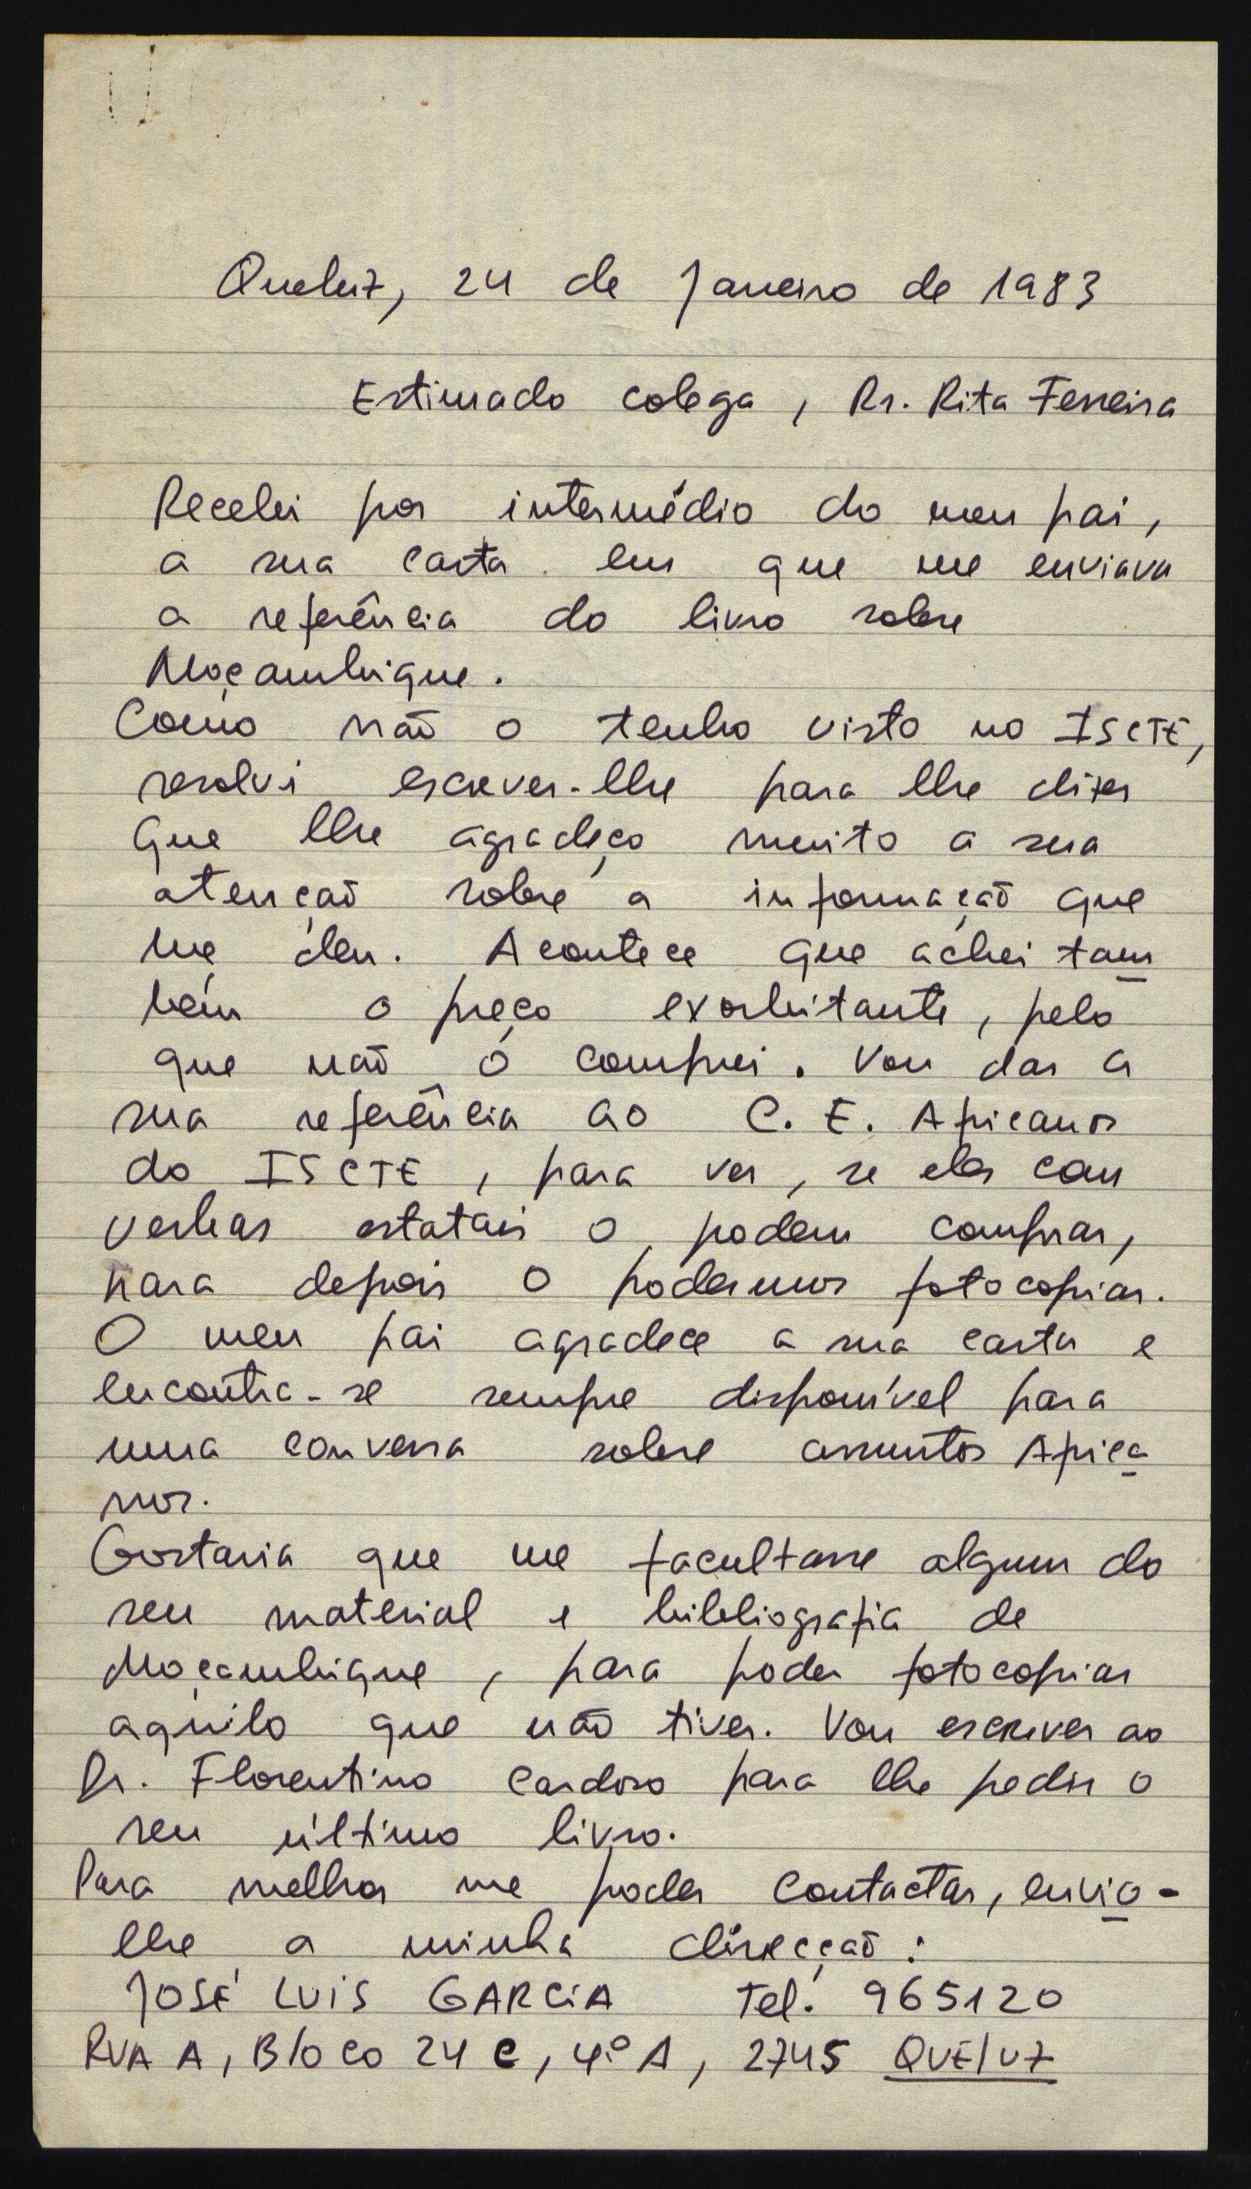 Queluz, 24 de Janeiro de 1983
Estimado colega, Dr. Rita Ferreira
Recebi por intermédio do meu pai,
a sua carta em que me enviava
a referência do livro sobre
Moçambique.
Como não o tenho visto no ISCTE,
resolvi escrever-lhe para lhe dizer
que lhe agradeço muito a sua
atenção sobre a informação que
me deu. Acontece que achei tam
bém o preço exorbitante, pelo
que não o comprei. Vou dar a
sua referência ao C. E. Africanos
do ISCTE, para ver, se eles com
verbas estatais o podem comprar,
para depois o podermos fotocopiar.
O meu pai agradece a sua carta e
encontra-se sempre disponível para
uma conversa sobre assuntos Africa
nos.
Gostaria que me facultasse algum do
seu material e bibliografia de
Moçambique, para poder fotocopiar
aquilo que não tiver. Vou escrever ao
Dr. Florentino Cardoso para lhe pedir o
seu último livro.
Para melhor me poder contactar, envio-
lhe a minha direcção:
JOSÉ LUIS GARCIA Tel. 965120
RUA A, Bloco 24 C, 4.º A, 2745 QUELUZ